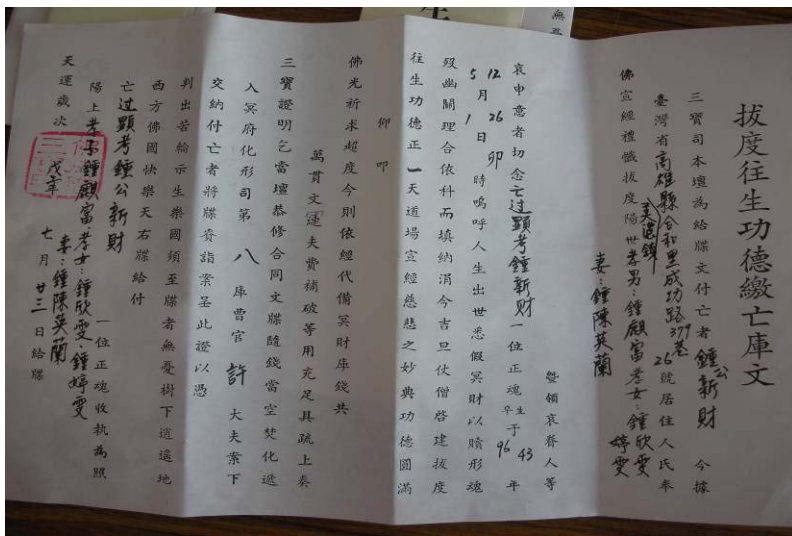 拔度往生功德繳亡庫文
三寶司本壇為給牒文付亡者 鍾公新財 今據
臺灣省高雄縣 里成功路379巷26號居住人氏奉
美濃鎮
佛宣經禮懺拔度陽世孝男:鍾麒富孝女:鍾欣雯
婷雯
妻:鍾陳英蘭
暨領哀眷人等
哀申意者切念亡过顯考鍾新財一位正魂生于43年
卒96
12月26日卯
5 1時嗚呼人生出世悉假冥財以贖形魂
歿幽關理合依科而填納涓今吉旦仗僧啓建拔度
往生功德正一天道場宣經慈悲之妙典功德圓滿
仰叩
佛光祈求超度今則依經代備冥財庫錢共
萬貫文運夫費補破等用充足具疏上奏
三寶證明乞當壇恭修合同文牒隨錢當空焚化遞
入冥府化形司第八庫曹官許大夫案下
交納付亡者將牒賫詣案呈此證以憑
判出苦輪示生樂國須至牒者無憂樹下逍遙地
西方佛國快樂天右牒給付
亡过顯考鍾公新財 一位正魂收執為照
陽上孝子鍾麒富孝女:鍾欣雯:鍾婷雯
妻:鍾陳英蘭
天運歲次 戊年 七月廿三日給牒